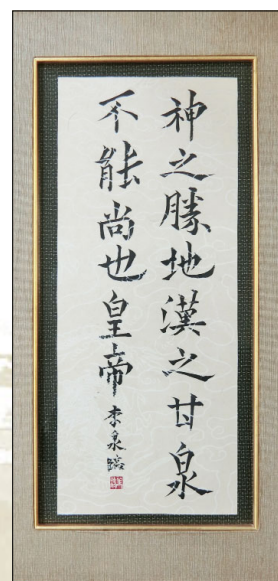 神之勝地漢之甘泉
不能尚也皇帝
李泉臨